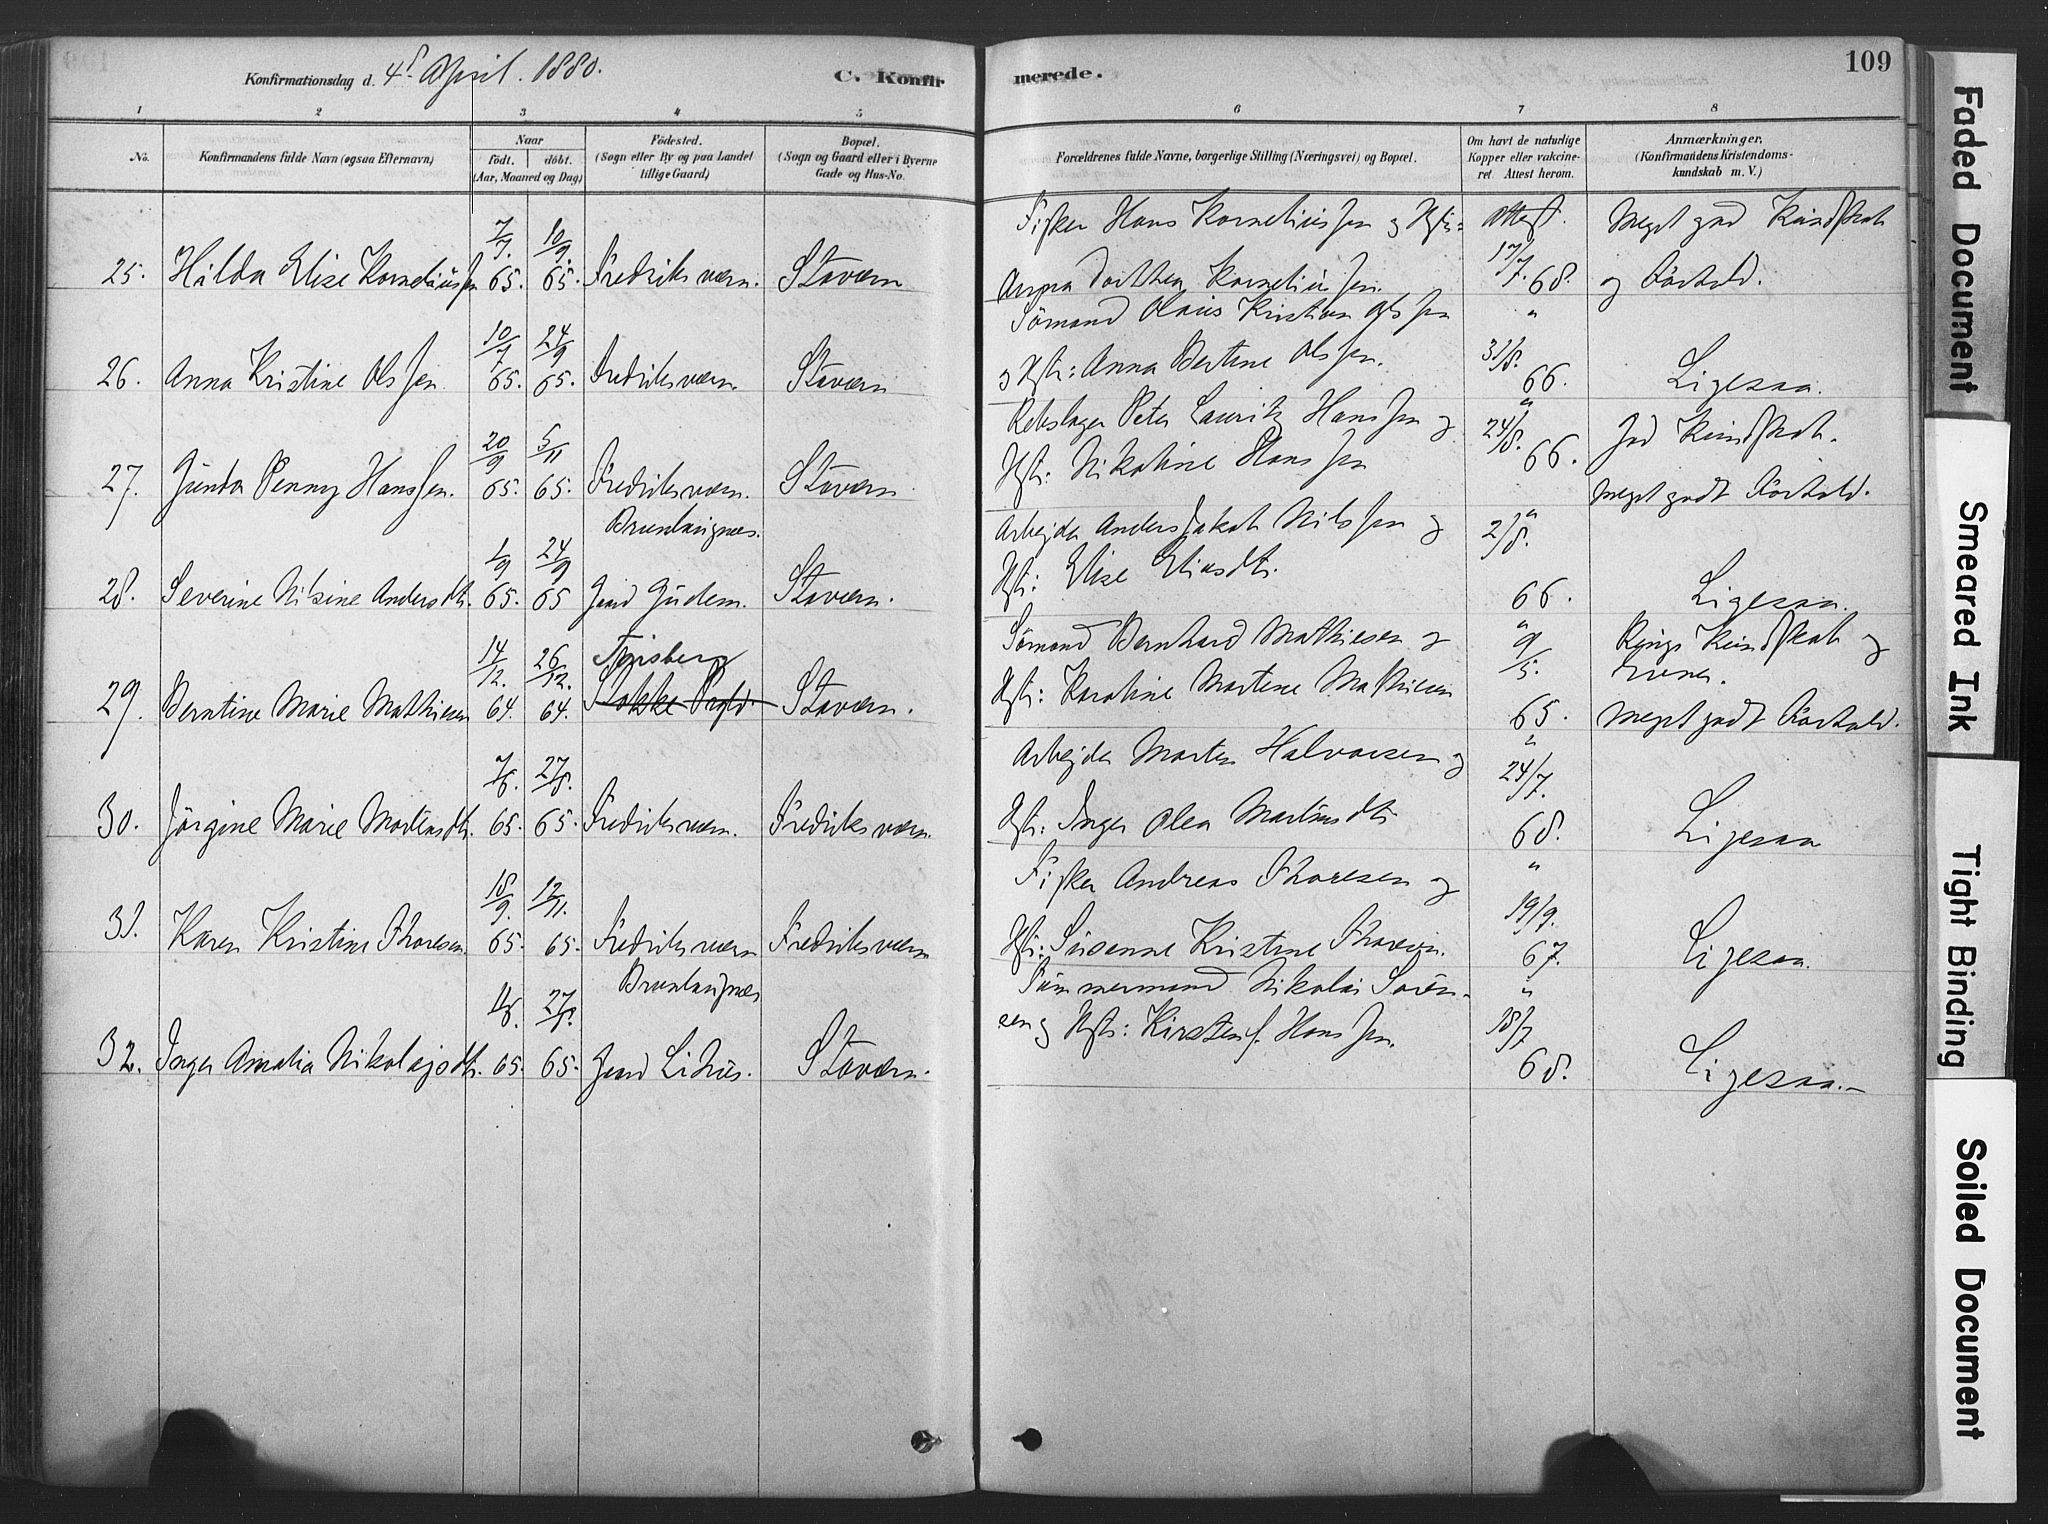 Konfirmationsdag d. 4de April. 1880.
C. Konfir merede.
109
1 2 3 4 5 6 7 8
No.
Konfirmandens fulde Navn (ogsaa Efternavn)
Naar
født. døbt.
(Aar, Moaned og Dag)
Fødested.
(Sogn eller By og paa Landet
tillige Gaard)
Bopæl.
(Sogn og Gaard eller i Byerne
Gade og Hus-No.
Forældrenes fulde Navne, borgerlige Stilling (Næringsvei) og Bopæl.
Om havt de naturlige
Kopper eller vakcine-
ret. Attest herom.
Anmærkninger.
(Konfirmandens Kristendoms-
kundskab m. V.)
25. Hilda Elise Korneliussen 7/7. 65. 10/9. 65. Fredriksværn. Stavern
Fisker Hans Korneliussen og Hstr:
Anna Dorthea Korneliussen.
Attest. 17/7. 68.
Meget god Kundskab
og Forhold.
26. Anna Kristine Olssen 10/7 65. 24/9 65. Fredriksværn. Stavern
Sømand Olaus Kristian Olssen
og Hstr: Anna Bertine Olssen.
" 31/8. 66.
Ligesaa.
27. Gunda Penny Hanssen. 20/9 65. 5/11 65. Fredriksværn. Stavern
Rebslager Peter Lauritz Hanssen og
Hstr: Nikoline Hanssen
" 24/8. 66.
God Kundskab.
Meget godt Forhold.
28. Severine Nilsine Andersdtr. 1/9 65. 24/9 65
Brunlaugnæs.
Gaard Gudem. Stavern.
Arbejder Anders Jakob Nilssen og
Hstr: Elise Eliasdtr.
" 2/8. 66.
Ligesaa.
29. Berntine Marie Mathiesen 14/12. 64. 26/12. 64.
Tønsberg
Stokke Prgld. Stavern.
Sømand Bernhard Mathiesen og
Hstr: Karoline Martene Mathiesen
" 9/5. 65.
Ringe Kundskab og
Evner.
Meget godt Forhold.
30. Jørgine Marie Mortensdtr. 7/6. 65. 27/8. 65. Fredriksværn. Fredriksværn.
Arbejder Morten Halvorsen og
Hstr: Inger Olea Martinsdtr
" 24/7. 68.
Ligesaa
31. Karen Kristine Thoresen. 18/9. 65. 12/11. 65. Fredriksværn Fredriksværn
Fisker Andreas Thoresen og
Hstr: Susanne Kristine Thoresen.
" 19/9. 67.
Ligesaa.
32. Inger Amalia Nikolajsdtr. 65. 27/8. 65.
Brunlaugnæs
Gaard Stavern.
Tømmermand Nikolai Søren-
sen og Hstr: Kirsten f. Hanssen.
" 18/7 68.
Ligesaa.—
Faded Document
Smeared Ink
Tight Binding
Soiled Document